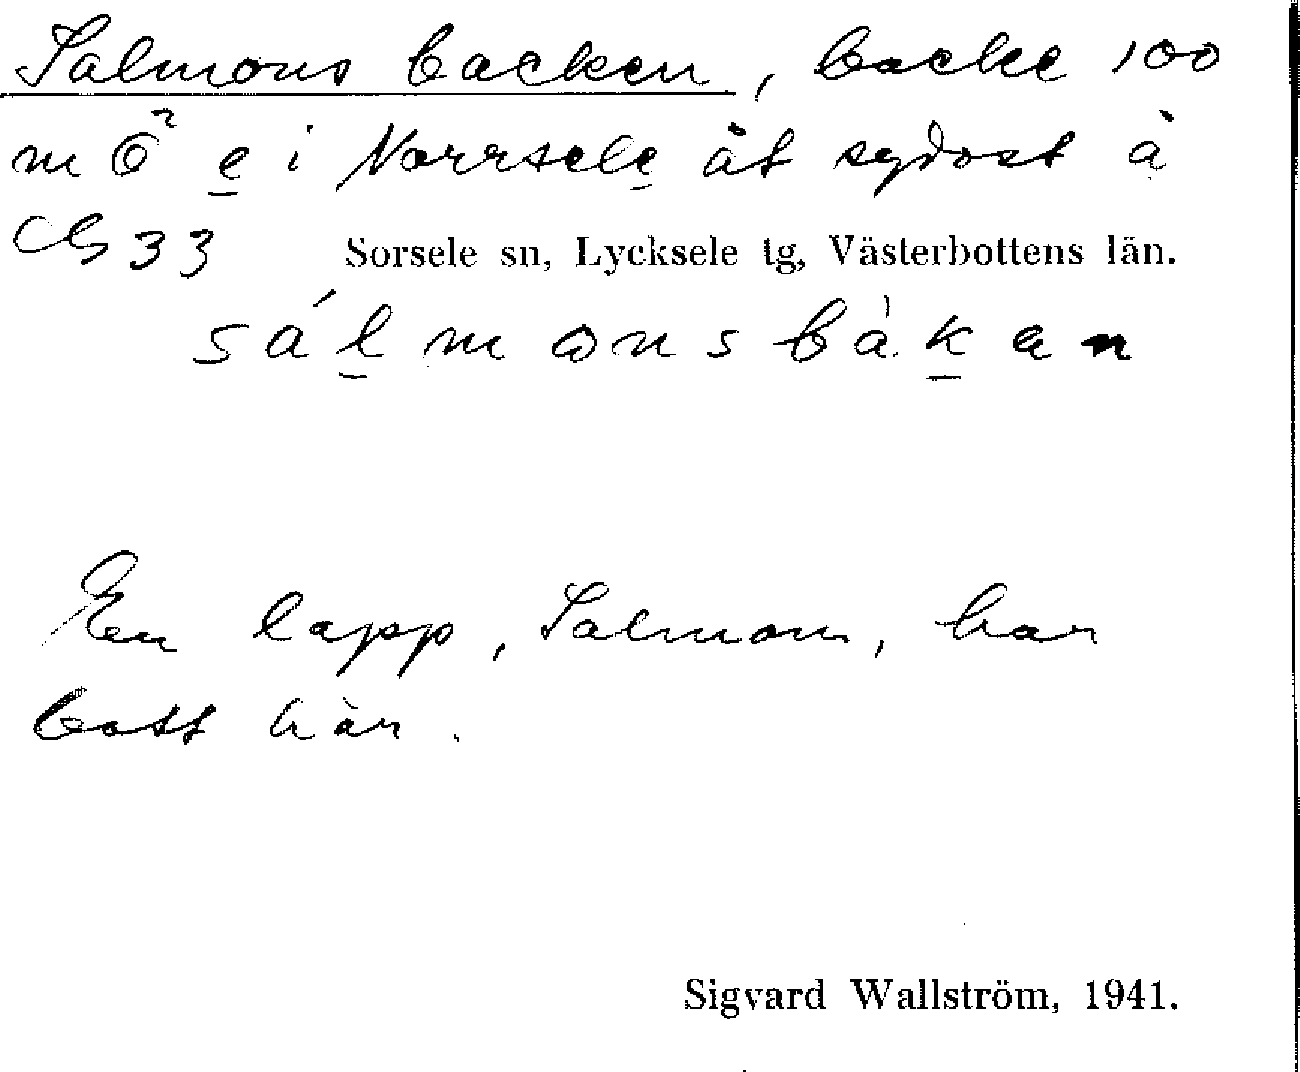 Salmons backen, backe 100
m Ö e i Norrsele åt sydost å
CG 33 Sorsele sn, Lycksele tg, Västerbottens län.
sálmonsbàkan
En lapp, Salmon, har
bott här.
Sigvard Wallström, 1941.